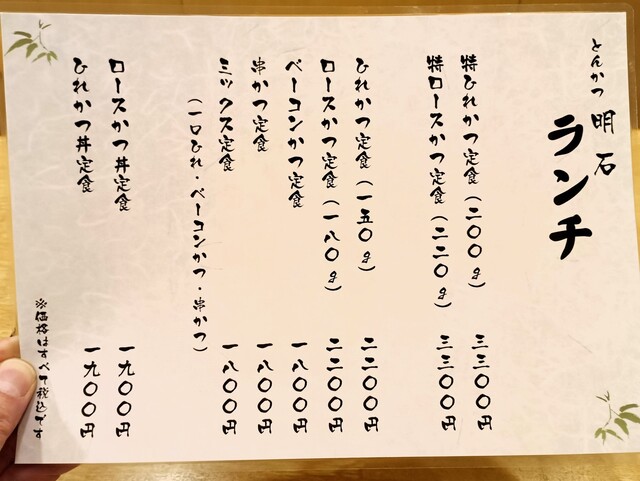 とんかつ 明石
ランチ
特ひれかつ定食(二〇〇g) 三三〇〇円
特ロースかつ定食(二二〇g) 三三〇〇円
ひれかつ定食(一五〇g) 二二〇〇円
ロースかつ定食(一八〇g) 二二〇〇円
ベーコンかつ定食 一八〇〇円
串かつ定食 一八〇〇円
ミックス定食 一八〇〇円
(一口ひれ・ベーコンかつ・串かつ)
ロースかつ丼定食 一九〇〇円
ひれかつ丼定食 一九〇〇円
※価格はすべて税込です